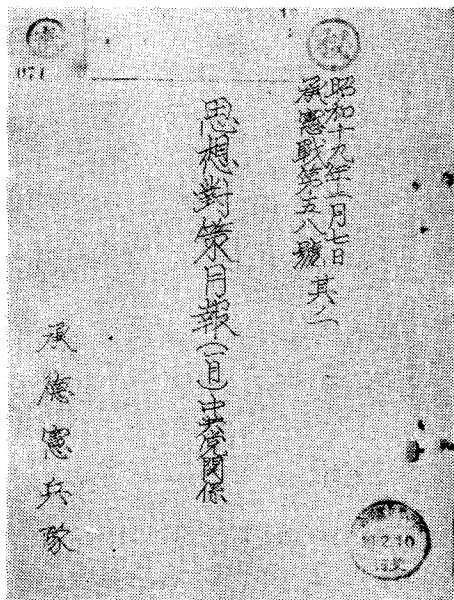 昭和十九年二月七日
承憲戰第五八號 其二
思想對策月報(一月)中共党関係
承德憲兵隊
071
2.10